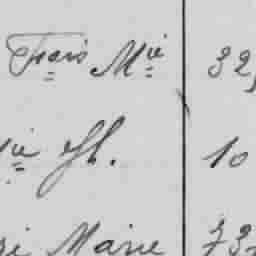 Frais Mie 32,
ie H. 10
Marie 732